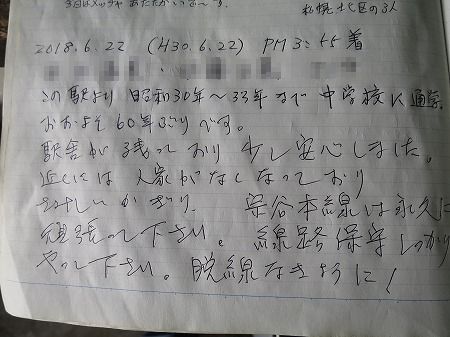 今日はメッチャ あたたかいで〜す。
札幌北区の3人
2018.6.22 (H30.6.22) PM3:55着
この駅より 昭和30年〜33年まで 中学校に通学
おおよそ60年ぶりです。
駅舎が残っており 少し安心しました。
近くには人家がなくなっており
さみしいかぎり。 宗谷本線は永久に
頑張って下さい。 線路保守しっかり
やって下さい。 脱線なきように!